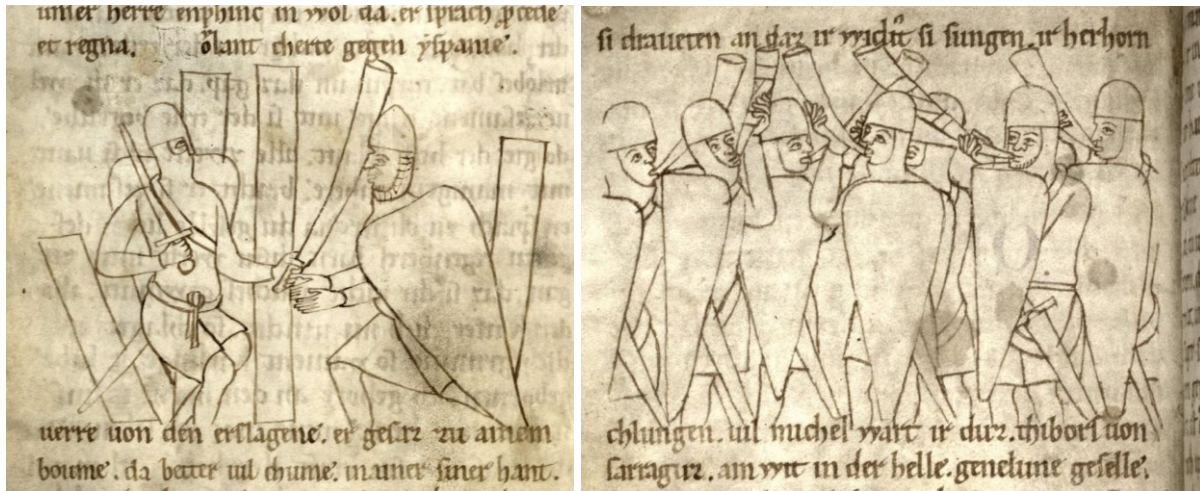 unser herre enphinc in wol da. er sprach ꝓcede
et regna. ölant cherte gegen yspanie.
uerre uon den erslagenē. er gesaz zu ainem
boume. da beiter uil chume. in ainer siner hant.
si draueten an daz ir si sungen. ir herhorn
chlungen. uil michel wart ir duz. thibors uon
sarraguz. amwit in der helle. genelune geselle.